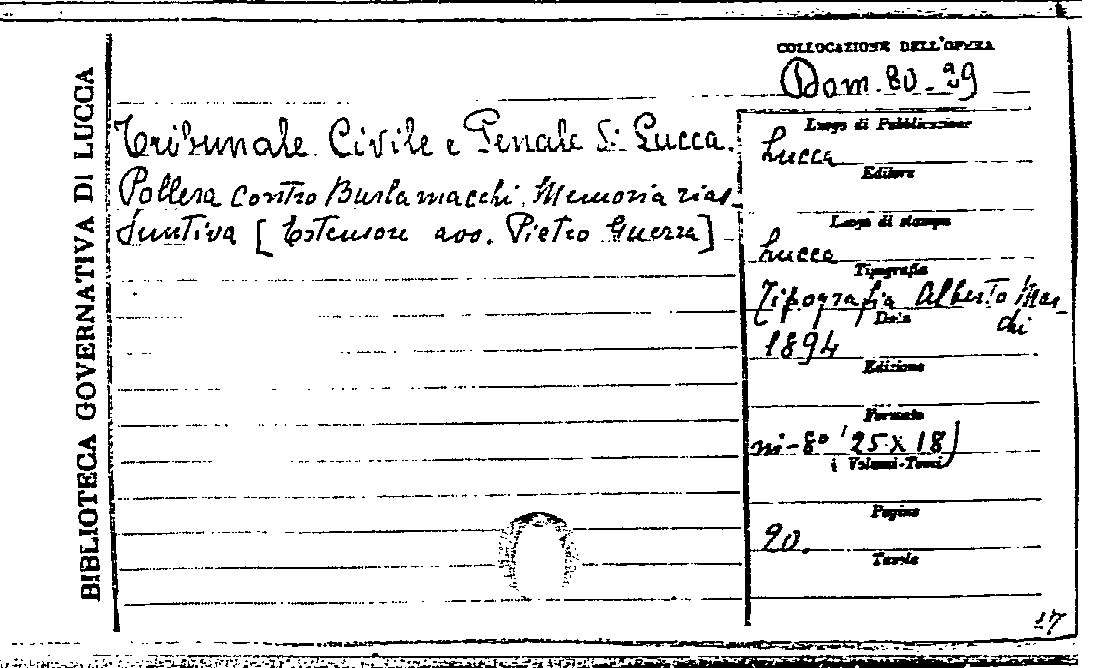 BIBLIOTECA GOVERNATIVA DI LUCCA
COLLOCAZIONE DELL'OPERA
Bom. 80. 29
Tribunale Civile e Penale di Lucca.
Pollera contro Burlamacchi. Memoria rias-
suntiva [Estensore avv. Pietro Guerra]
Luogo di Pubblicazione
Lucca
Editore
Luogo di stampa
Lucca
Tipografia
Tipografia Alberto Mar-
chi
Data
1894
Edizione
Formato
in-8° (25 X 18)
i Volumi-Tomi
Pagine
20.
Tavole
17